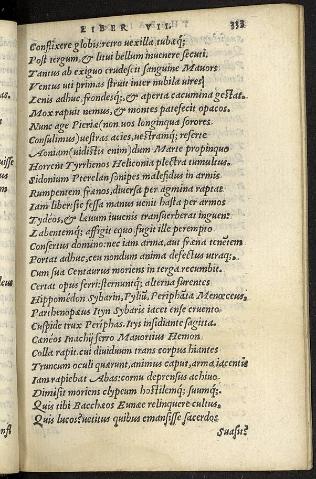 LIBER VII. 353
Conflixere globis: retro uexilla tubæq;
Post tergum, & litui bellum inuenere secuti.
Tantus ab exiguo crudescit sanguine Mauors
Ventus uti primas struit inter nubila uires
Lenis adhuc, frondesq;, & aperta cacumina gestat.
Mox rapuit nemus, & montes patefecit opacos.
Nunc age Pieriæ (non uos longinqua sorores
Consulimus) uestras acies, uestramq; referte
Aoniam (uidistis enim) dum Marte propinquo
Horrent Tyrrhenos Heliconia plectra tumultus.
Sidonium Pterelan sonipes malefidus in armis
Rumpentem frænos, diuersa per agmina raptat
Iam liber: sic fessa manus uenit hasta per armos
Tydeos, & læuum iuuenis transuerberat inguen:
Labentemq; affigit equo, fugit ille perempto
Consertus domino: nec iam arma, aut fræna tenentem
Portat adhuc, ceu nondum anima defectus utraq;.
Cum sua Centaurus moriens in terga recumbit.
Certat opus ferri: sternuntq; alterna furentes
Hippomedon Sybarin, Pyliū, Periphāta Menœceus.
Parthenopæus Ityn Sybaris iacet ense cruento
Cuspide trux Periphas. Itys insidiante sagitta.
Cæneos Inachij ferro Mauortius Hemon
Colla rapit. cui diuiduum trans corpus hiantes
Truncum oculi quærunt, animus caput, arma iacentis
Iam rapiebat Abas: cornu deprensus achiuo
Dimisit moriens clypeum hostilemq; suumq;.
Quis tibi Bacchæos Eunæe relinquere cultus.
Quis lucos? uetitus quibus emansisse sacerdos
Suasit?